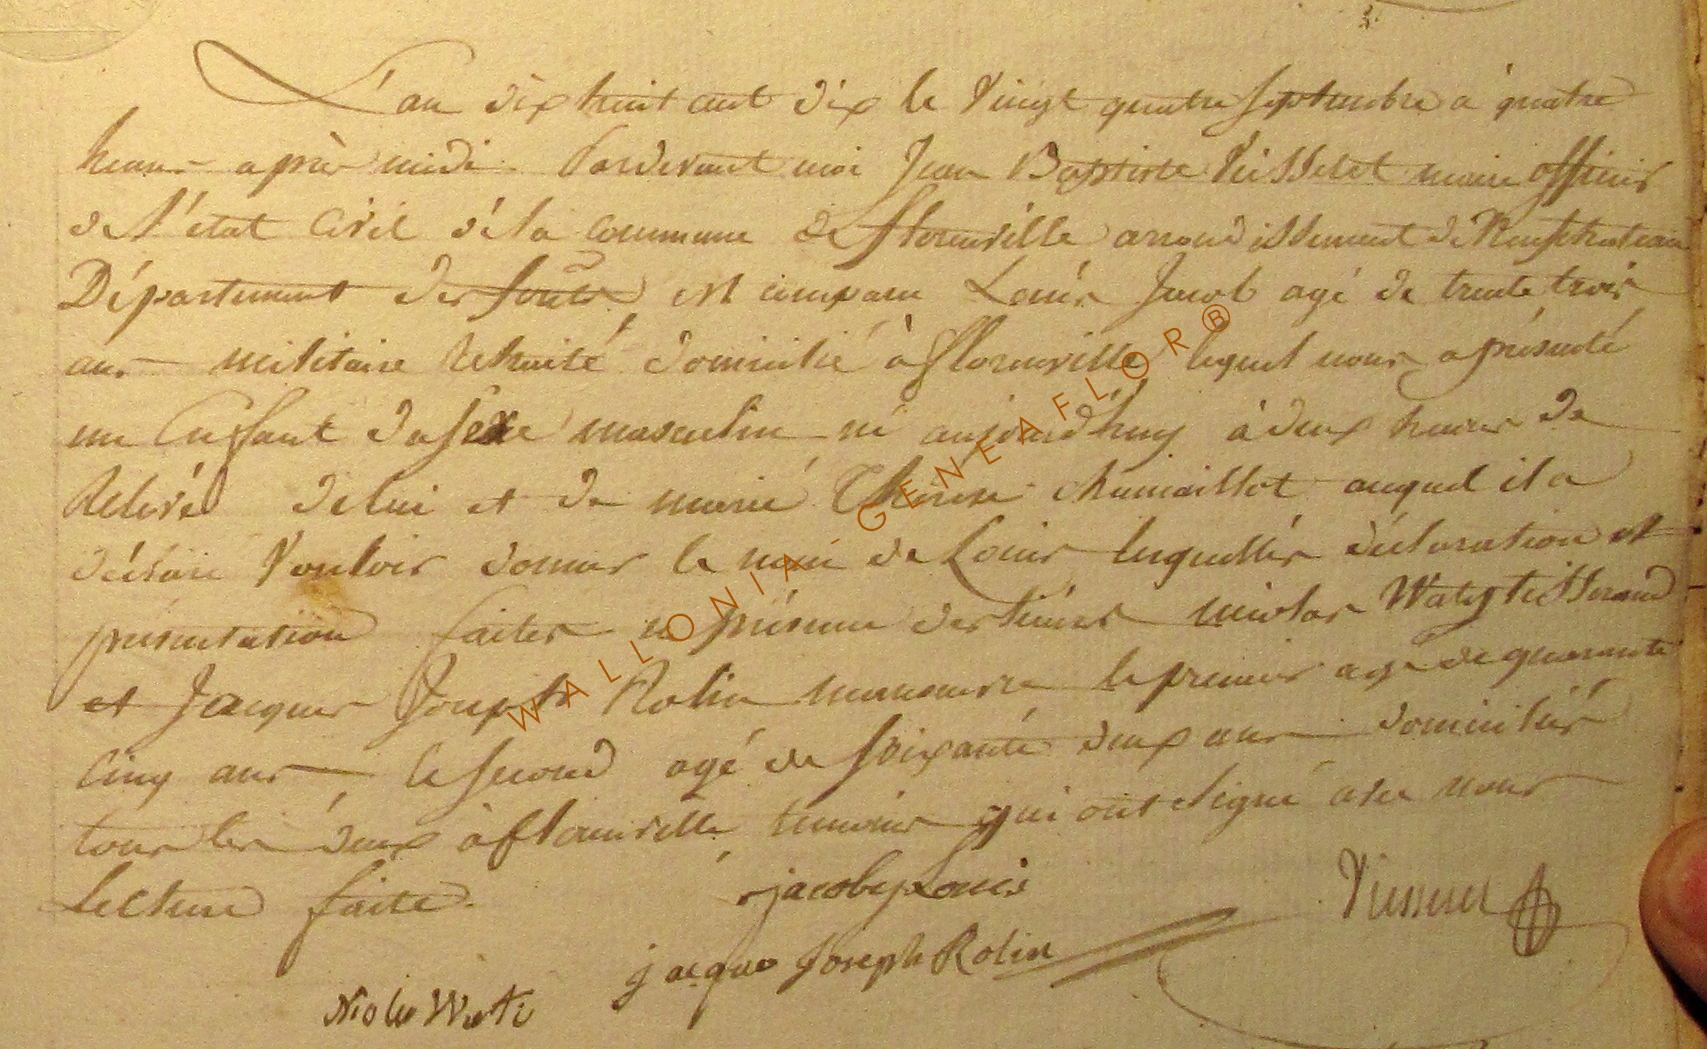 L'an dix huit cent dix le Vingt quatre septembre à quatre
heures après midi Pardevant moi Jean Baptiste Vusselet maire officier
de l'état Civil de la Commune de florenville arrondissement de Neufchateau
Département des forets est comparu Louis Jacob agé de trente trois
ans militaire retraité domicilié à florenville lequel nous a présenté
un Enfant du sexe masculin né aujourd'huy à deux heures de
relevé de lui et de marie Therese auquel il a
déclaré Vouloir donner le nom de Louis lesquelles déclaration et
presentation faites en présence des sieurs nicolas Waty tisserand
et Jacques Joseph Rolin manoeuvre le premier agé de quarante
Cinq ans le second agé de soixante deux ans domiciliés
tous les deux à florenville temoins qui ont signé avec nous
lecture faite.
jacoby Louis
jacque Joseph Rolin
WALLONIA GENEAFLOR®